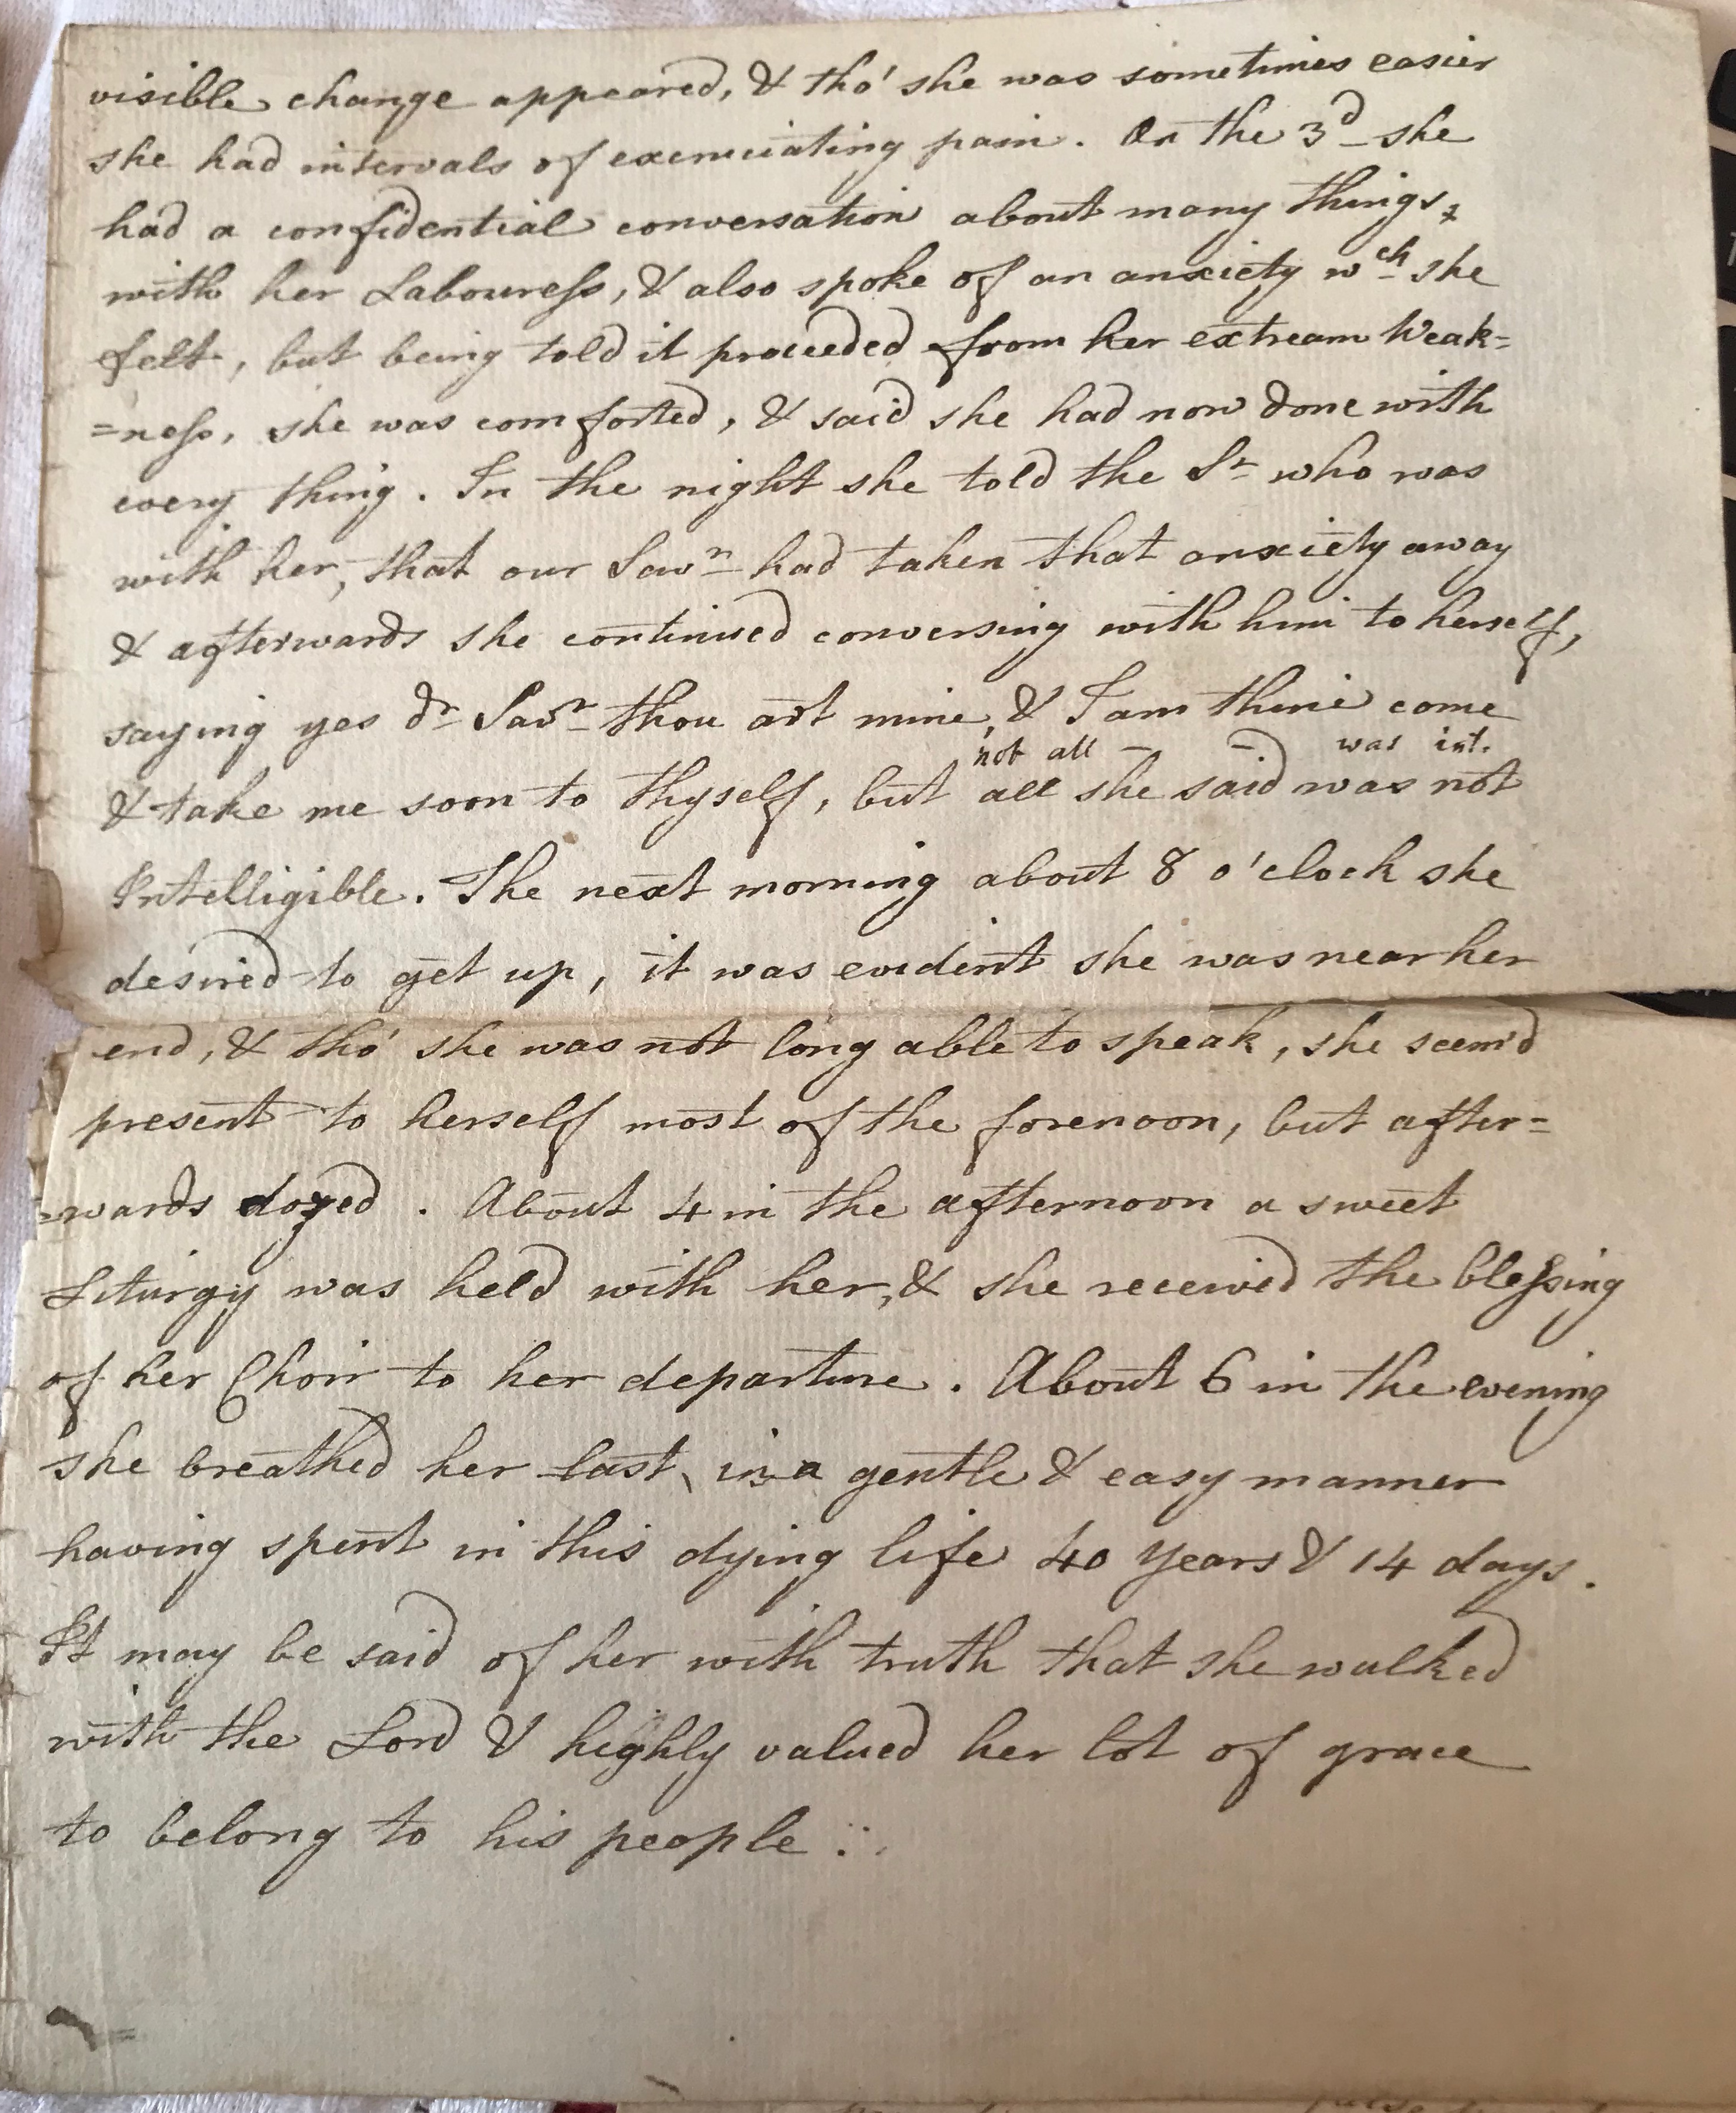 visible change appeared, & tho' she was sometimes easier
she had intervals of excruciating pain. On the 3d she
had a confidential conversation about many things,
with her Labouress, & also spoke of an anxiety wch she
felt, but being told it proceeded from her extream Weak=
=ness, she was comforted, & said she had now done with
every thing. In the night she told the Sr who was
with her, that our Savr had taken that anxiety away
& afterwards she continued conversing with him to herself,
saying yes dr Savr thou art mine, & I am thine come
not all — — was int.
& take me soon to thyself, but all she said was not
Intelligible. The next morning about 8 o'clock she
desired to get up, it was evident she was near her
end, & tho' she was not long able to speak, she seem'd
present to herself most of the forenoon, but after=
=wards dozed. About 4 in the afternoon a sweet
Liturgy was held with her, & she received the blessing
of her Choir to her departure. About 6 in the evening
she breathed her last, in a gentle & easy manner
having spent in this dying life 40 years & 14 days.
It may be said of her with truth that she walked
with the Lord & highly valued her lot of grace
to belong to his people.